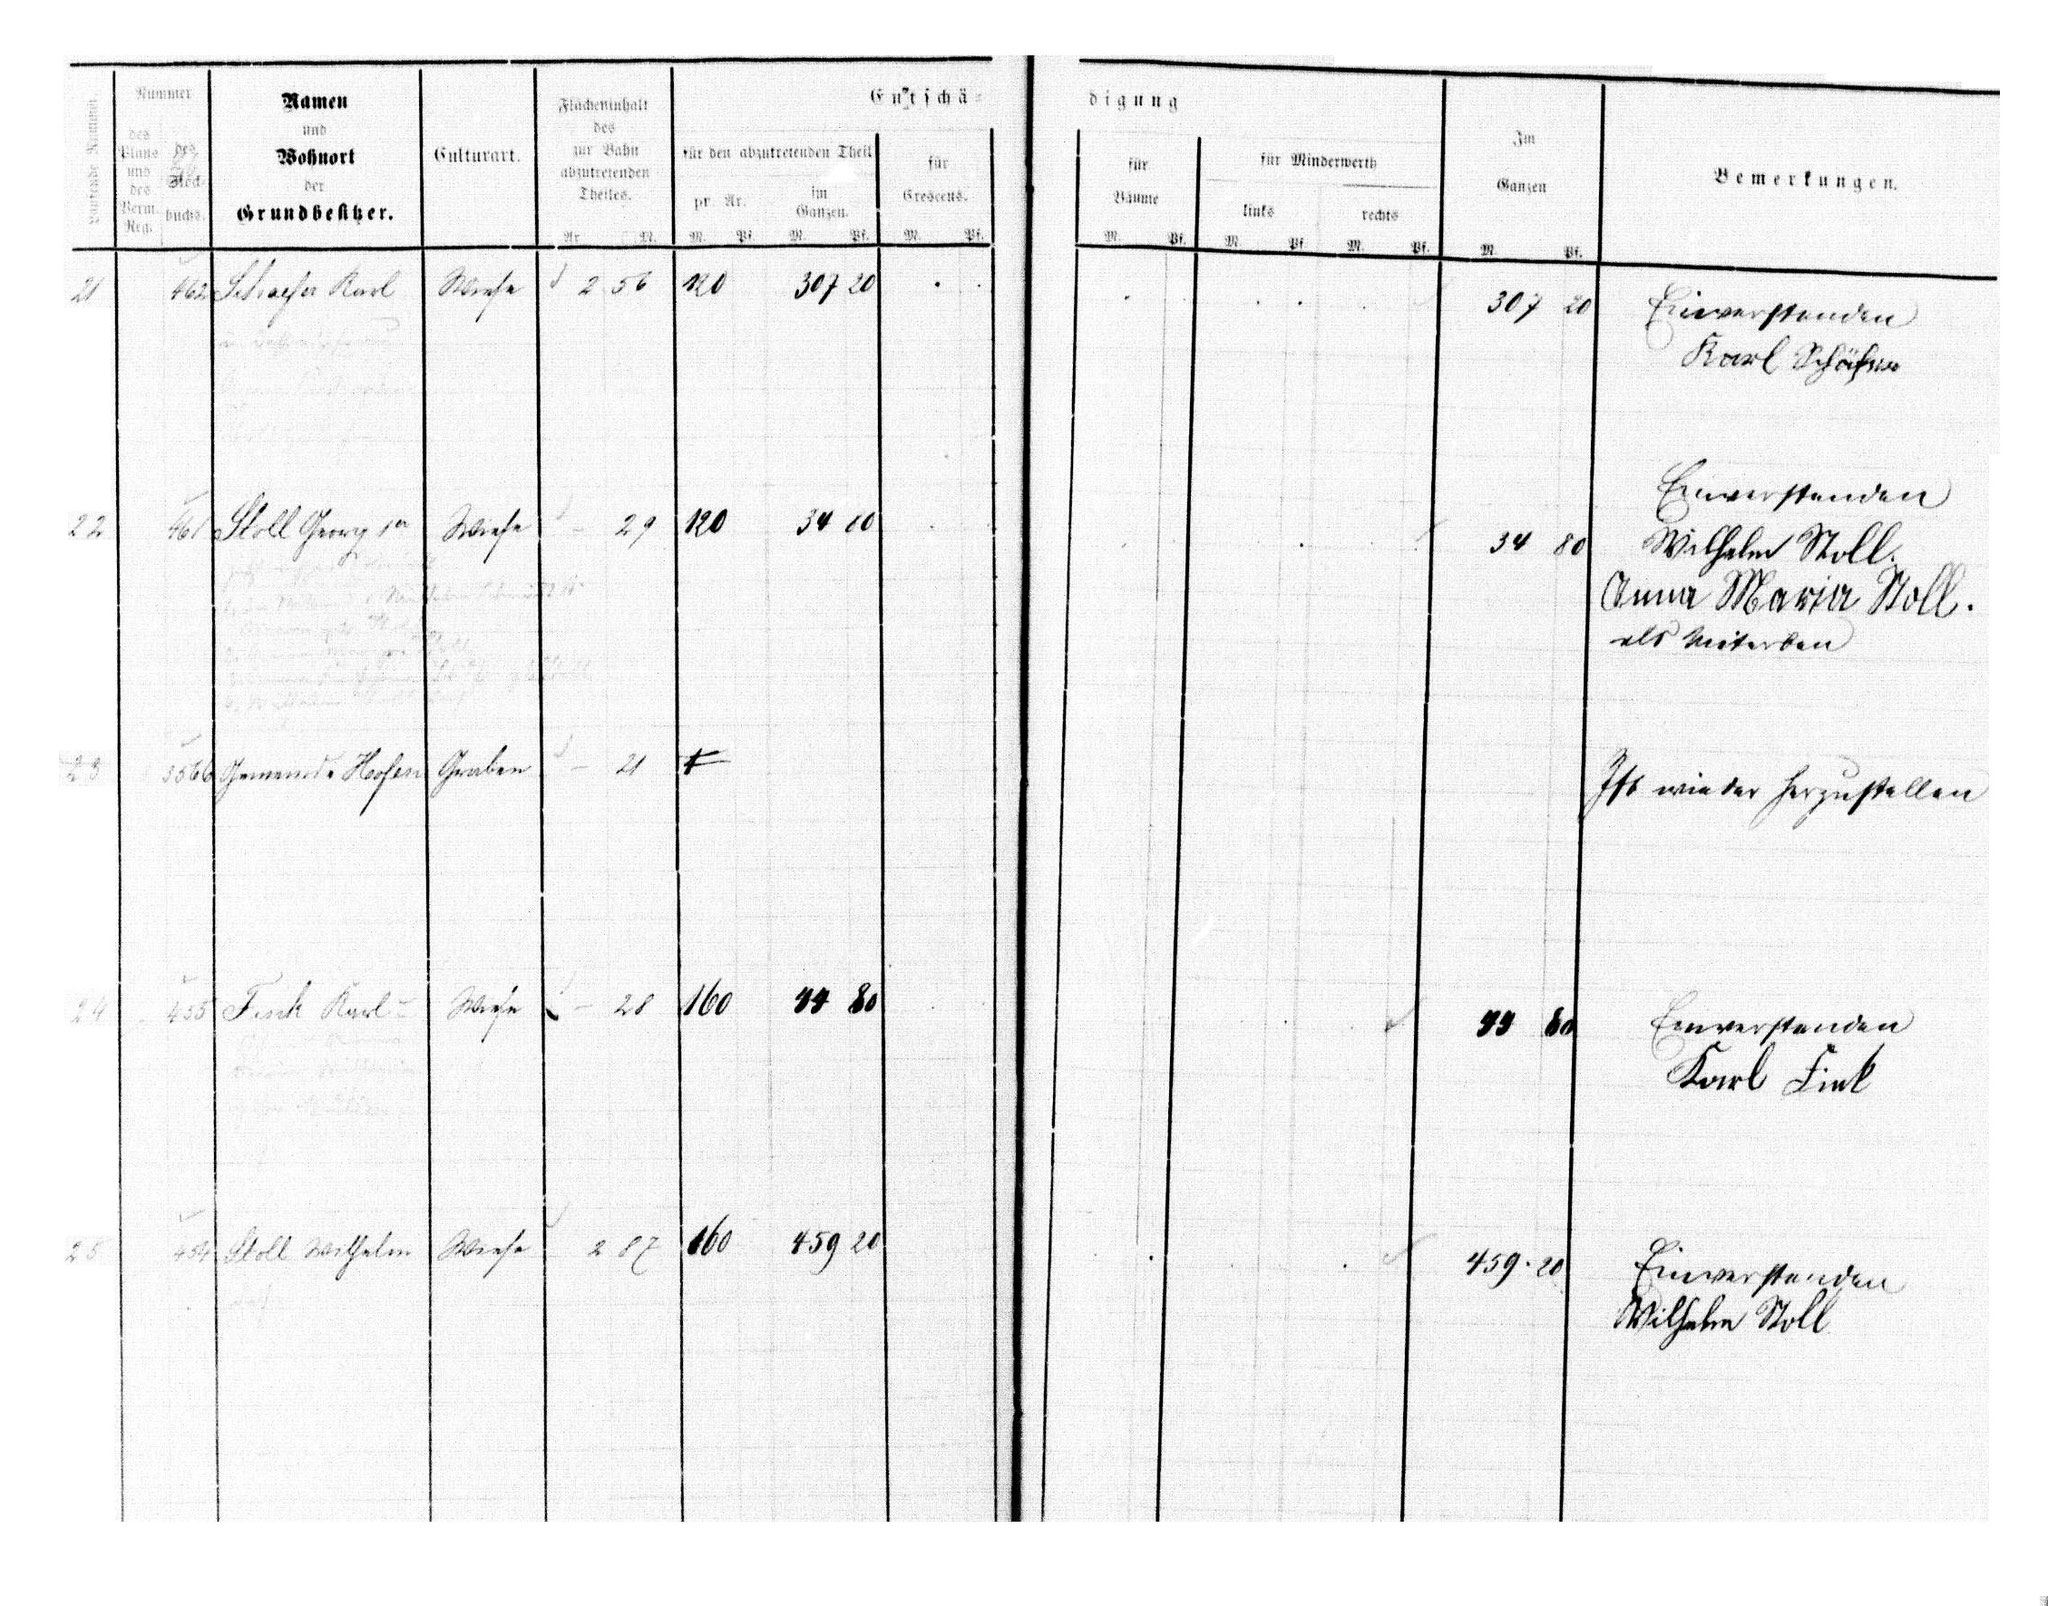 Entschä=
digung
Laufende Nummer.
Nummer
des Plans und des Verm. Reg.
des Flock-buchs.
Namen
und
Wohnort
der
Grundbesitzer.
Culturart.
Flächeninhalt
des
zur Bahn
abzutretenden
Theiles.
Ar M.
für den abzutretenden Theil
pr. Ar.
M. Pf.
im
Ganzen.
M. Pf.
für
Crescens.
M. Pf.
für
Bäume
M. Pf.
für Minderwerth
links
M. Pf.
rechts
M. Pf.
Im
Ganzen
M. Pf.
Bemerkungen.
21 462 Schaefer Karl Wiese 2 56 120 307 20 307 20 Einverstanden
Karl Schäfer
22 461 Stoll Georg 1r Wiese – 29 120 34 80 34 80 Einverstanden
Wilhelm Stoll.
Anna Maria Stoll.
als Miterben
23 3566 Gemeinde Hofen Graben – 21 Ist wieder herzustellen
24 455 Fink Karl Wiese – 28 160 44 80 44 80 Einverstanden
Karl Fink
25 454 Stoll Wilhelm Wiese 2 87 160 459 20 459.20 Einverstanden
Wilhelm Stoll